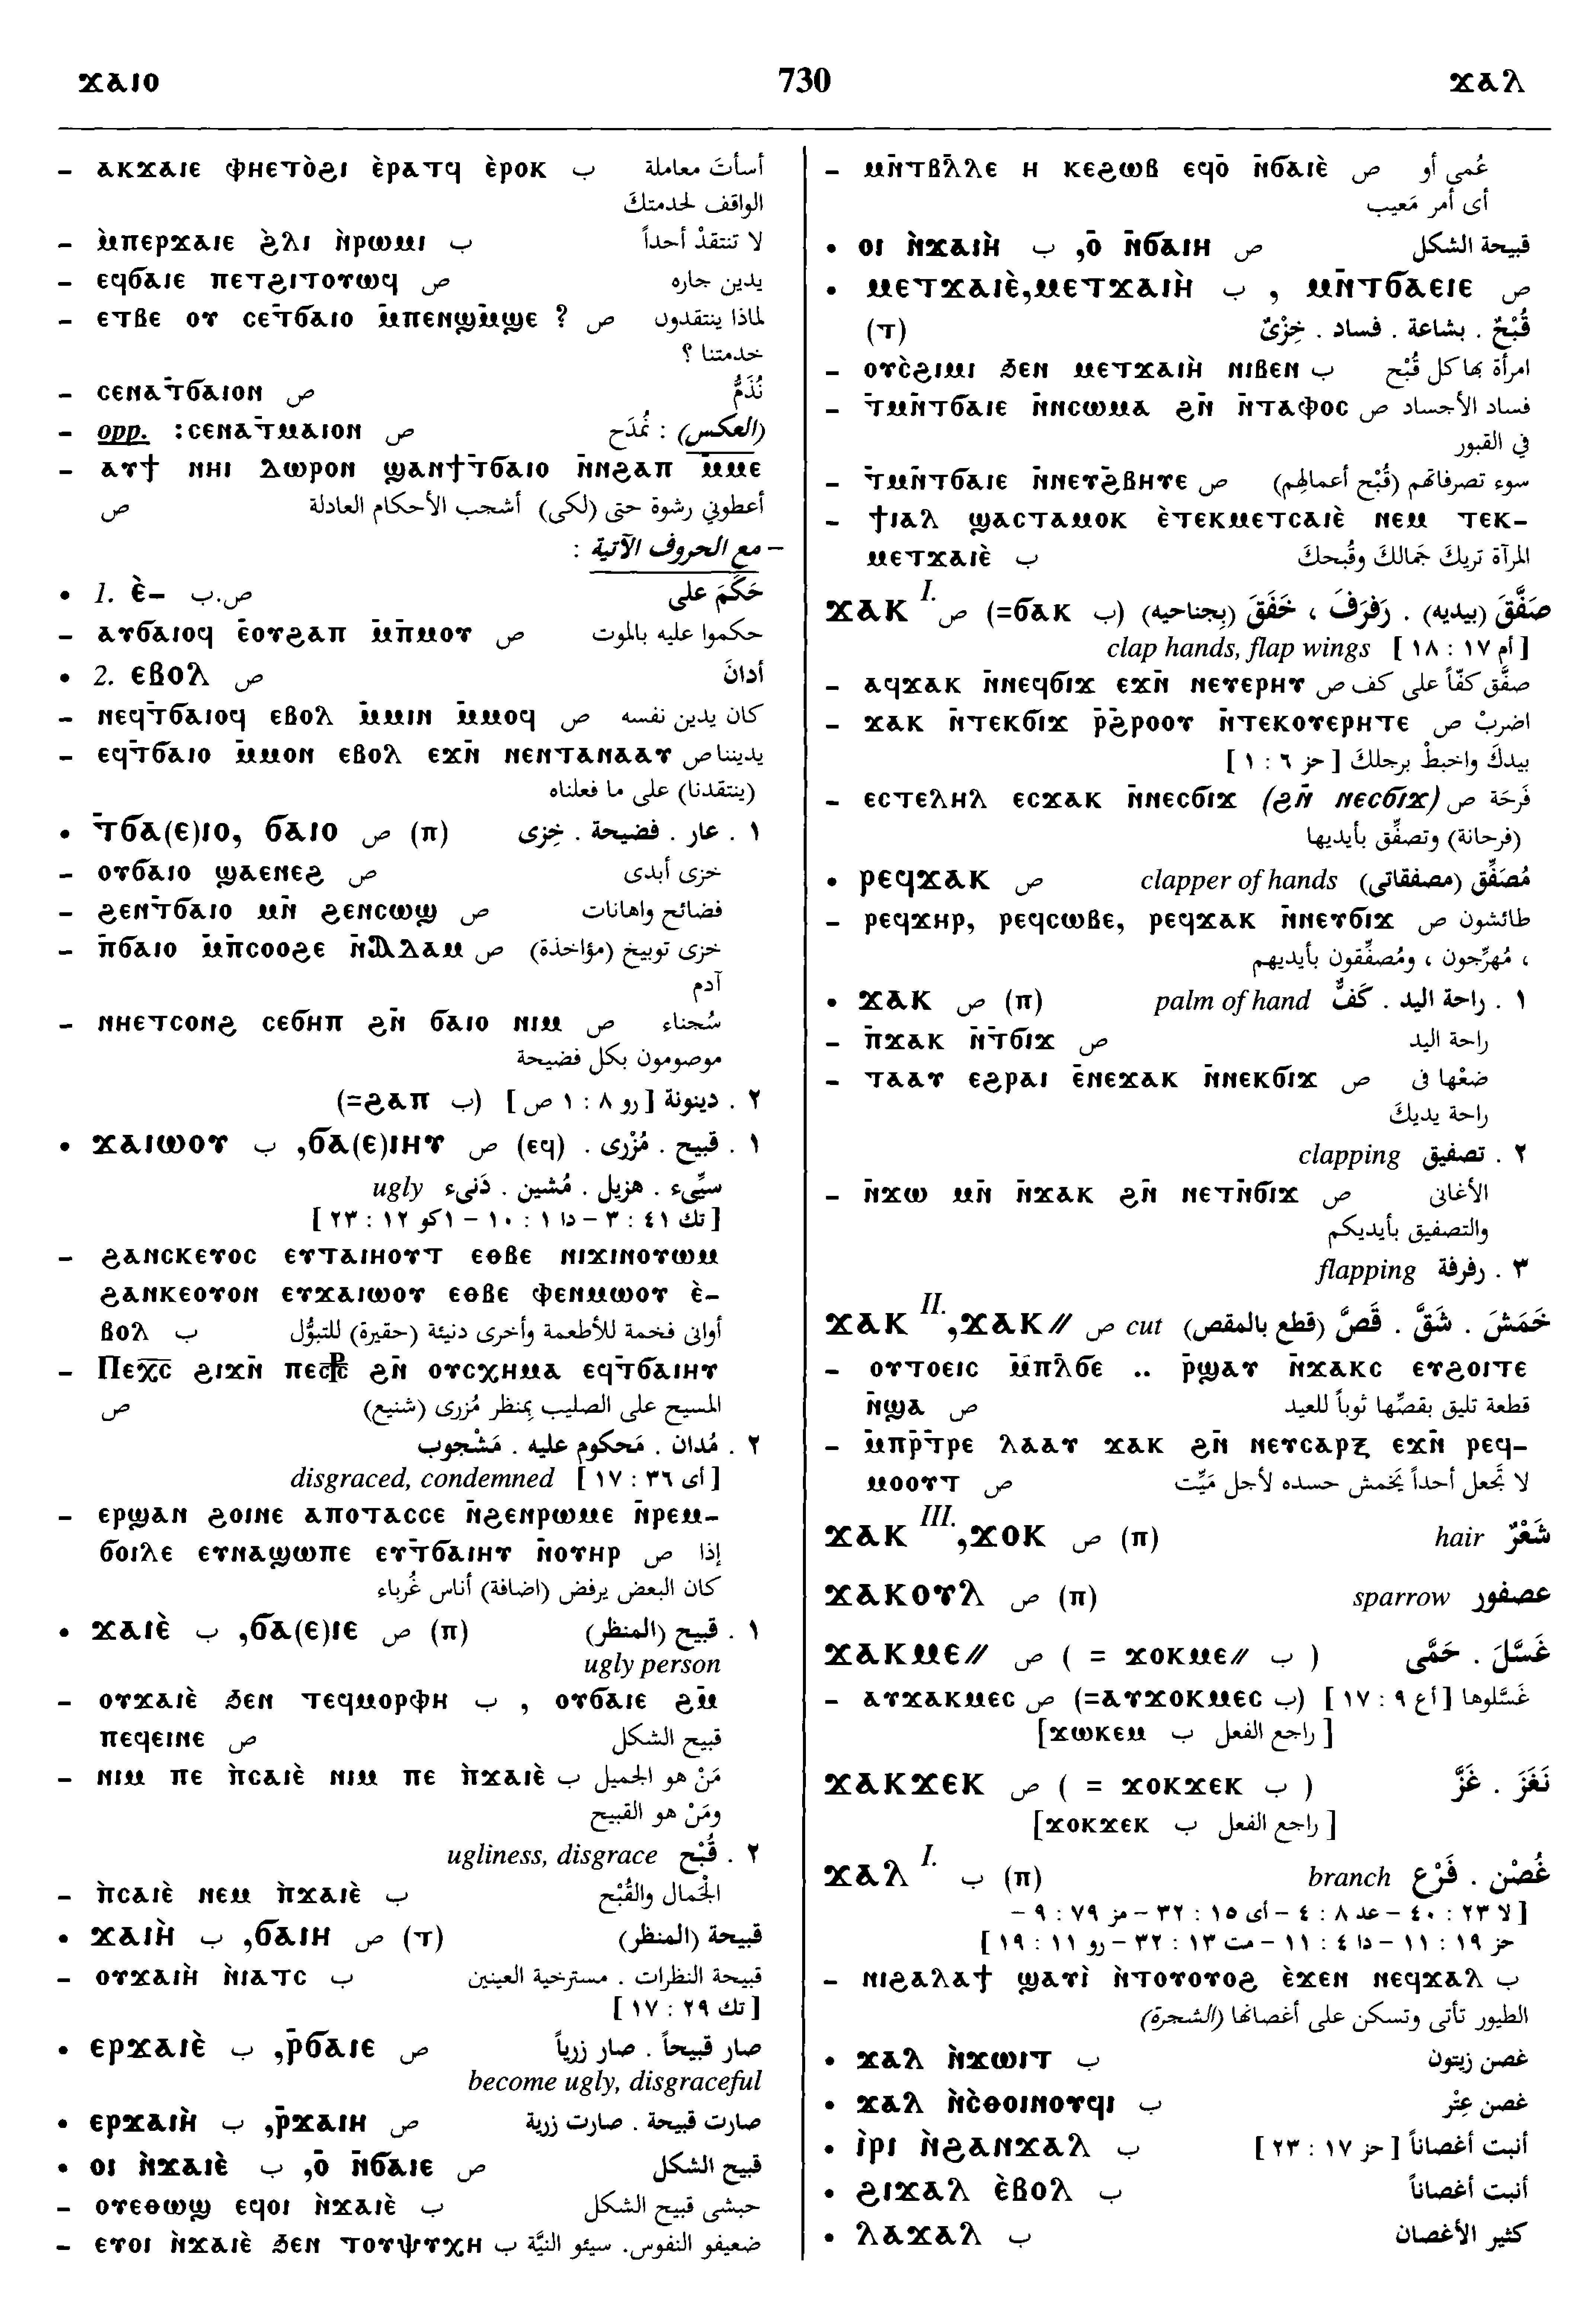 ϫⲁⲓⲟ 730 ϫⲁⲗ
– ⲁⲕϫⲁⲓⲉ ⲫⲏⲉⲧⲟ̀ϩⲓ ⲉ̀ⲣⲁⲧϥ ⲉ̀ⲣⲟⲕ ب أسأتَ معاملة
الواقف لخدمتكَ
– ⲙ̀ⲡⲉⲣϫⲁⲓⲉ ϩ̀ⲗⲓ ⲛ̀ⲣⲱⲙⲓ ب لا تنتقدْ أحداً
– ⲉϥϭⲁⲓⲉ ⲡⲉⲧϩⲓⲧⲟⲩⲱϥ ص يدين جاره
– ⲉⲧⲃⲉ ⲟⲩ ⲥⲉⲧ̄ϭⲁⲓⲟ ⲙ̄ⲡⲉⲛϣⲙ̄ϣⲉ ? ص لماذا ينتقدون
خدمتنا ؟
– ⲥⲉⲛⲁⲧ̄ϭⲁⲓⲟⲛ ص نُذَمُّ
– opp. :ⲥⲉⲛⲁⲧ̄ⲙⲁⲓⲟⲛ ص (العكس) : نُمدَح
– ⲁⲩϯ ⲛⲏⲓ ⲇⲱⲣⲟⲛ ϣⲁⲛϯⲧ̄ϭⲁⲓⲟ ⲛ̄ⲛϩⲁⲡ ⲙ̄ⲙⲉ
أعطوني رشوة حتى (لكى) أشجب الأحكام العادلة ص
– مع الحروف الآتية :
• 1. ⲉ̀– ص.ب حَكَمَ على
– ⲁⲩϭⲁⲓⲟϥ ⲉ̄ⲟⲩϩⲁⲡ ⲙ̄ⲡⲙⲟⲩ ص حكموا عليه بالموت
• 2. ⲉⲃⲟⲗ ص أدانَ
– ⲛⲉϥⲧ̄ϭⲁⲓⲟϥ ⲉⲃⲟⲗ ⲙ̄ⲙⲓⲛ ⲙ̄ⲙⲟϥ ص كان يدين نفسه
– ⲉϥⲧ̄ϭⲁⲓⲟ ⲙ̄ⲙⲟⲛ ⲉⲃⲟⲗ ⲉϫⲛ̄ ⲛⲉⲛⲧⲁⲛⲁⲁⲩ ص يديننا
(ينتقدنا) على ما فعلناه
• ⲧ̄ϭⲁ(ⲉ)ⲓⲟ, ϭⲁⲓⲟ ص (ⲡ) ١ . عار . فضيحة . خِزى
– ⲟⲩϭⲁⲓⲟ ϣⲁⲉⲛⲉϩ ص خزى أبدى
– ϩⲉⲛⲧ̄ϭⲁⲓⲟ ⲙⲛ̄ ϩⲉⲛⲥⲱϣ ص فضائح واهانات
– ⲡ̄ϭⲁⲓⲟ ⲙ̄ⲡⲥⲟⲟϩⲉ ⲛ̄ⲁⲇⲁⲙ ص خزى توبيخ (مؤاخذة)
آدم
– ⲛⲏⲉⲧⲥⲟⲛϩ ⲥⲉϭⲏⲡ ϩⲛ̄ ϭⲁⲓⲟ ⲛⲓⲙ ص سُجناء
موصومون بكل فضيحة
٢ . دينونة [ رو ٨ : ١ ص ] (ب ϩⲁⲡ=)
• ϫⲁⲓⲱⲟⲩ ب ,ϭⲁ(ⲉ)ⲓⲏⲩ ص (ⲉϥ) ١ . قبيح . مُزْرى .
سيِّىء . هزيل . مُشين . دَنىء ugly
[ تك ٤١ : ٣ – دا ١ : ١٠ – ١كو ١٢ : ٢٣ ]
– ϩⲁⲛⲥⲕⲉⲩⲟⲥ ⲉⲩⲧⲁⲓⲏⲟⲩⲧ ⲉⲑⲃⲉ ⲛⲓϫⲓⲛⲟⲩⲱⲙ
ϩⲁⲛⲕⲉⲟⲩⲟⲛ ⲉⲩϫⲁⲓⲱⲟⲩ ⲉⲑⲃⲉ ⲫⲉⲛⲙⲱⲟⲩ ⲉ̀–
ⲃⲟⲗ ب أوانى فخمة للأطعمة وأخرى دنيئة (حقيرة) للتبوُّل
– Ⲡⲉⲭ̄ⲥ̄ ϩⲓϫⲛ̄ ⲡⲉⲥ⳨ⲥ ϩⲛ̄ ⲟⲩⲥⲭⲏⲙⲁ ⲉϥⲧ̄ϭⲁⲓⲏⲩ
المسيح على الصليب بمنظر مُزرى (شنيع) ص
٢ . مُدان . مَحكوم عليه . مَشْجوب
disgraced, condemned [ أى ٣٦ : ١٧ ]
– ⲉⲣϣⲁⲛ ϩⲟⲓⲛⲉ ⲁⲡⲟⲧⲁⲥⲥⲉ ⲛ̄ϩⲉⲛⲣⲱⲙⲉ ⲛ̄ⲣⲉⲙ–
ϭⲟⲓⲗⲉ ⲉⲩⲛⲁϣⲱⲡⲉ ⲉⲩⲧ̄ϭⲁⲓⲏⲩ ⲛ̄ⲟⲩⲏⲣ ص إذا
كان البعض يرفض (اضافة) أناس غُرباء
• ϫⲁⲓⲉ̀ ب ,ϭⲁ(ⲉ)ⲓⲉ ص (ⲡ) ١ . قبيح (المنظر)
ugly person
– ⲟⲩϫⲁⲓⲉ̀ ϧⲉⲛ ⲧⲉϥⲙⲟⲣⲫⲏ ب , ⲟⲩϭⲁⲓⲉ ϩⲙ̄
ⲡⲉϥⲉⲓⲛⲉ ص قبيح الشكل
– ⲛⲓⲙ ⲡⲉ ⲡ̀ⲥⲁⲓⲉ̀ ⲛⲓⲙ ⲡⲉ ⲡ̀ϫⲁⲓⲉ̀ ب مَنْ هو الجميل
ومَنْ هو القبيح
٢ . قُبْح ugliness, disgrace
– ⲡ̀ⲥⲁⲓⲉ̀ ⲛⲉⲙ ⲡ̀ϫⲁⲓⲉ̀ ب الجَمال والقُبْح
• ϫⲁⲓⲏ̀ ب ,ϭⲁⲓⲏ ص (ⲧ) قبيحة (المنظر)
– ⲟⲩϫⲁⲓⲏ̀ ⲛ̀ⲓⲁⲧⲥ ب قبيحة النظرات . مسترخية العينين
[ تك ٢٩ : ١٧ ]
• ⲉⲣϫⲁⲓⲉ̀ ب ,ⲣ̄ϭⲁⲓⲉ ص صار قبيحاً . صار زرياً
become ugly, disgraceful
• ⲉⲣϫⲁⲓⲏ̀ ب ,ⲣ̄ϫⲁⲓⲏ ص صارت قبيحة . صارت زرية
• ⲟⲓ ⲛ̀ϫⲁⲓⲉ̀ ب ,ⲟ̄ ⲛ̄ϭⲁⲓⲉ ص قبيح الشكل
– ⲟⲩⲉⲑⲱϣ ⲉϥⲟⲓ ⲛ̀ϫⲁⲓⲉ̀ ب حبشى قبيح الشكل
– ⲉⲩⲟⲓ ⲛ̀ϫⲁⲓⲉ̀ ϧⲉⲛ ⲧⲟⲩⲯⲩⲭⲏ ب ضعيفو النفوس. سيئو النيَّة
– ⲙⲛ̄ⲧⲃⲗ̄ⲗⲉ ⲏ ⲕⲉϩⲱⲃ ⲉϥⲟ̄ ⲛ̄ϭⲁⲓⲉ̀ ص عُمى أو
أى أمر مَعيب
• ⲟⲓ ⲛ̀ϫⲁⲓⲏ̀ ب ,ⲟ̄ ⲛ̄ϭⲁⲓⲏ ص قبيحة الشكل
• ⲙⲉⲧϫⲁⲓⲉ̀,ⲙⲉⲧϫⲁⲓⲏ̀ ب , ⲙⲛ̄ⲧϭⲁⲉⲓⲉ ص
(ⲧ) قُبْحٌ . بشاعة . فساد . خِزْىٌ
– ⲟⲩⲥ̀ϩⲓⲙⲓ ϧⲉⲛ ⲙⲉⲧϫⲁⲓⲏ̀ ⲛⲓⲃⲉⲛ ب امرأة بها كل قُبْح
– ⲧ̄ⲙⲛ̄ⲧϭⲁⲓⲉ ⲛ̄ⲛⲥⲱⲙⲁ ϩⲛ̄ ⲛ̄ⲧⲁⲫⲟⲥ ص فساد الأجساد
في القبور
– ⲧ̄ⲙⲛ̄ⲧϭⲁⲓⲉ ⲛ̄ⲛⲉⲩϩ̄ⲃⲏⲩⲉ ص سوء تصرفاتهم (قُبْح أعمالهم)
– ϯⲓⲁⲗ ϣⲁⲥⲧⲁⲙⲟⲕ ⲉ̀ⲧⲉⲕⲙⲉⲧⲥⲁⲓⲉ̀ ⲛⲉⲙ ⲧⲉⲕ–
ⲙⲉⲧϫⲁⲓⲉ̀ ب المرآة تريكَ جَمالكَ وقُبحكَ
ϫⲁⲕ I. ص (=ϭⲁⲕ ب) صَفَّقَ (بيديه) . رَفرَفَ ، خَفَقَ (بجناحيه)
clap hands, flap wings [ أم ١٧ : ١٨ ]
– ⲁϥϫⲁⲕ ⲛ̄ⲛⲉϥϭⲓϫ ⲉϫⲛ̄ ⲛⲉⲩⲉⲣⲏⲩ ص صفَّق كفّاً على كف
– ϫⲁⲕ ⲛ̄ⲧⲉⲕϭⲓϫ ⲣ̄ϩⲣⲟⲟⲩ ⲛ̄ⲧⲉⲕⲟⲩⲉⲣⲏⲧⲉ ص اضربْ
بيدكَ واخبطْ برجلكَ [ حز ٦ : ١ ]
– ⲉⲥⲧⲉⲗⲏⲗ ⲉⲥϫⲁⲕ ⲛ̄ⲛⲉⲥϭⲓϫ (ϩⲛ̄ ⲛⲉⲥϭⲓϫ) ص فَرحَة
(فرحانة) وتصفِّق بأيديها
• ⲣⲉϥϫⲁⲕ ص clapper of hands مُصَفِّق (مصفقاتى)
– ⲣⲉϥϫⲏⲣ, ⲣⲉϥⲥⲱⲃⲉ, ⲣⲉϥϫⲁⲕ ⲛ̄ⲛⲉⲩϭⲓϫ ص طائشون
، مُهرِّجون ، ومُصفِّقون بأيديهم
• ϫⲁⲕ ص (ⲡ) palm of hand ١ . راحة اليد . كَفٌّ
– ⲡ̄ϫⲁⲕ ⲛ̄ⲧϭⲓϫ ص راحة اليد
– ⲧⲁⲁⲩ ⲉϩⲣⲁⲓ ⲉ̄ⲛⲉϫⲁⲕ ⲛ̄ⲛⲉⲕϭⲓϫ ص ضعْها فى
راحة يديكَ
٢ . تصفيق clapping
– ⲛ̄ϫⲱ ⲙⲛ̄ ⲛ̄ϫⲁⲕ ϩⲛ̄ ⲛⲉⲧⲛ̄ϭⲓϫ ص الأغانى
والتصفيق بأيديكم
٣ . رفرفة flapping
ϫⲁⲕ II. ,ϫⲁⲕ// ص cut خَمَشَ . شَقَّ . قَصَّ (قطع بالمقص)
– ⲟⲩⲧⲟⲉⲓⲥ ⲙ̄ⲡⲗ̄ϭⲉ .. ⲣ̄ϣⲁⲩ ⲛ̄ϫⲁⲕⲥ ⲉⲩϩⲟⲓⲧⲉ
ⲛ̄ϣⲁ ص قطعة تليق بقصِّها ثوباً للعيد
– ⲙ̄ⲡⲣ̄ⲧⲣⲉ ⲗⲁⲁⲩ ϫⲁⲕ ϩⲛ̄ ⲛⲉⲩⲥⲁⲣⲝ ⲉϫⲛ̄ ⲣⲉϥ–
ⲙⲟⲟⲩⲧ ص لا تَجعل أحداً يَخمش حسده لأجل مَيِّت
ϫⲁⲕ III. ,ϫⲟⲕ ص (ⲡ) hair شَعْرٌ
ϫⲁⲕⲟⲩⲗ ص (ⲡ) sparrow عصفور
ϫⲁⲕⲙⲉ// ص ( = ϫⲟⲕⲙⲉ// ب ) غَسَّلَ . حَمَّى
– ⲁⲩϫⲁⲕⲙⲉⲥ ص (=ⲁⲩϫⲟⲕⲙⲉⲥ ب) غسَّلوها [ أع ٩ : ١٧ ]
[ϫⲱⲕⲉⲙ ب راجع الفعل ]
ϫⲁⲕϫⲉⲕ ص ( = ϫⲟⲕϫⲉⲕ ب ) نَغَزَ . غَزَّ
[ϫⲟⲕϫⲉⲕ ب راجع الفعل ]
ϫⲁⲗ I. ب (ⲡ) branch غُصْن . فَرْع
[ لا ٢٣ : ٤٠ – عد ٨ : ٤ – أى ١٥ : ٣٢ – مز ٧٩ : ٩ –
حز ١٩ : ١١ – دا ٤ : ١١ – مت ١٣ : ٣٢ – رو ١١ : ١٩ ]
– ⲛⲓϩⲁⲗⲁϯ ϣⲁⲩⲓ̀ ⲛ̀ⲧⲟⲩⲟⲩⲟϩ ⲉ̀ϫⲉⲛ ⲛⲉϥϫⲁⲗ ب
الطيور تأتى وتسكن على أغصانها (الشجرة)
• ϫⲁⲗ ⲛ̀ϫⲱⲓⲧ ب غصن زيتون
• ϫⲁⲗ ⲛ̀ⲥ̀ⲑⲟⲓⲛⲟⲩϥⲓ ب غصن عِتْر
• ⲓ̀ⲣⲓ ⲛ̀ϩⲁⲛϫⲁⲗ ب أنبت أغصاناً [ حز ١٧ : ٢٣ ]
• ϩⲓϫⲁⲗ ⲉ̀ⲃⲟⲗ ب أنبت أغصاناً
• ⲗⲁϫⲁⲗ ب كثير الأغصان